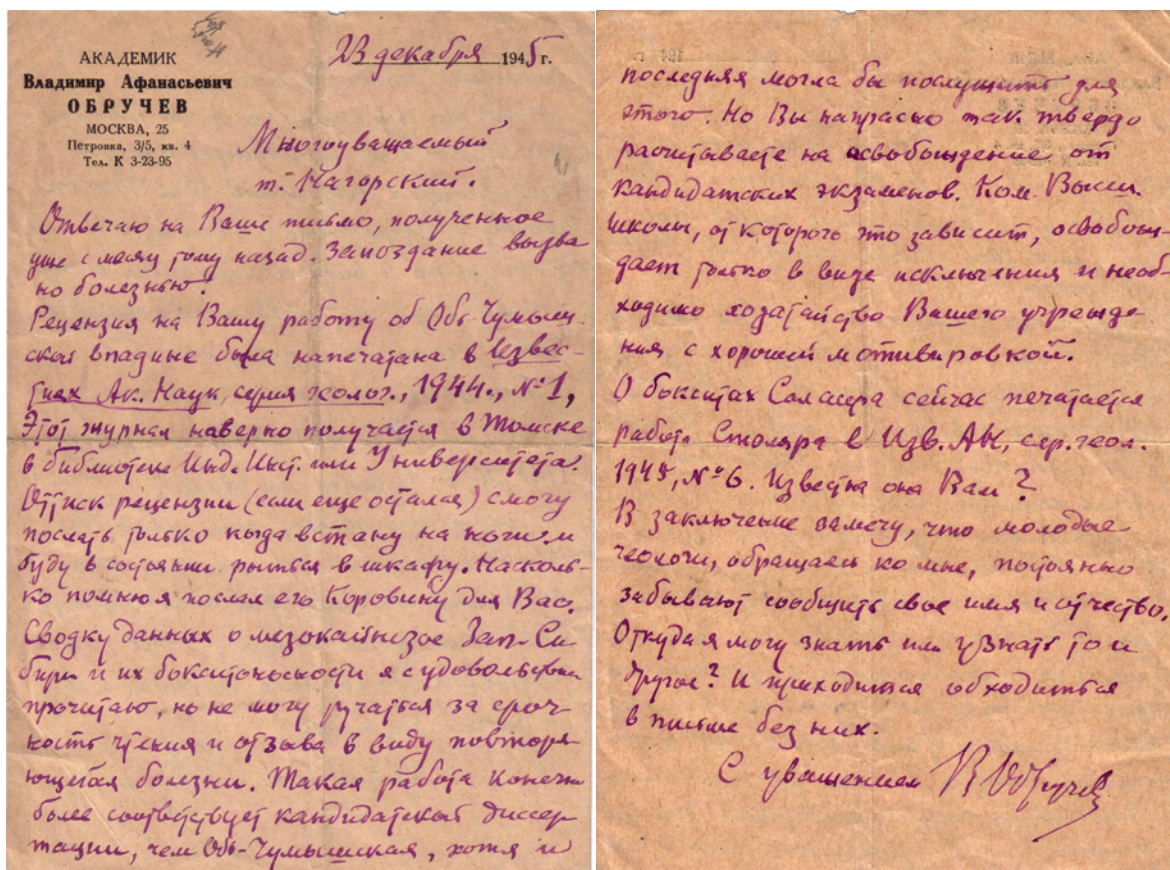 АКАДЕМИК
Владимир Афанасьевич
ОБРУЧЕВ
МОСКВА, 25
Петровка, 3/5, кв. 4
Тел. К 3-23-95
23 декабря 1945 г.
Многоуважаемый
т. Нагорский.
Отвечаю на Ваше письмо, полученное
уже с месяц тому назад. Запоздание вызва
но болезнью.
Рецензия на Вашу работу об Обь-Чумыш-
ской впадине была напечатана в Извес-
тиях Ак. Наук, серия геолог., 1944., №1,
Этот журнал наверно получается в Томске
в библиотеке Инд. Инст. или Университета.
Оттиск рецензии (если еще остался) смогу
послать только когда встану на ноги и
буду в состоянии рыться в шкафу. Насколь-
ко помню я послал его Коровину для Вас.
Сводку данных о мезокайнозое Зап. Си-
бири и их бокситоносности я с удовольствием
прочитаю, но не могу ручаться за сроч-
ность чтения и отзыва в виду повторя-
ющейся болезни. Такая работа конечно
более соответствует кандидатской диссер-
тации, чем Обь-Чумышская, хотя и
последняя могла бы послужить для
этого. Но Вы напрасно так твердо
расчитываете на освобождение от
кандидатских экзаменов. Ком. Высш.
школы, от которого это зависит, освобож-
дает только в виде исключения и необ-
ходимо ходатайство Вашего учрежде-
ния с хорошей мотивировкой.
О бокситах Салаира сейчас печатается
работа Столяра в Изв. АН, сер. геол.
1945, №6. Известна она Вам?
В заключение замечу, что молодые
геологи, обращаясь ко мне, постоянно
забывают сообщить свое имя и отчество.
Откуда я могу знать или узнать то и
другое? И приходится обходиться
в письме без них.
С уважением В Обручев